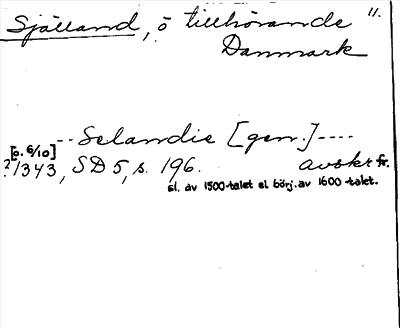 Själland, ö tillhörande 11.
Danmark
--Selandie [gen.]----
[o. 6/10]
? 1343, SD 5, s. 196. avskr fr.
sl. av 1500-talet el börj. av 1600-talet.